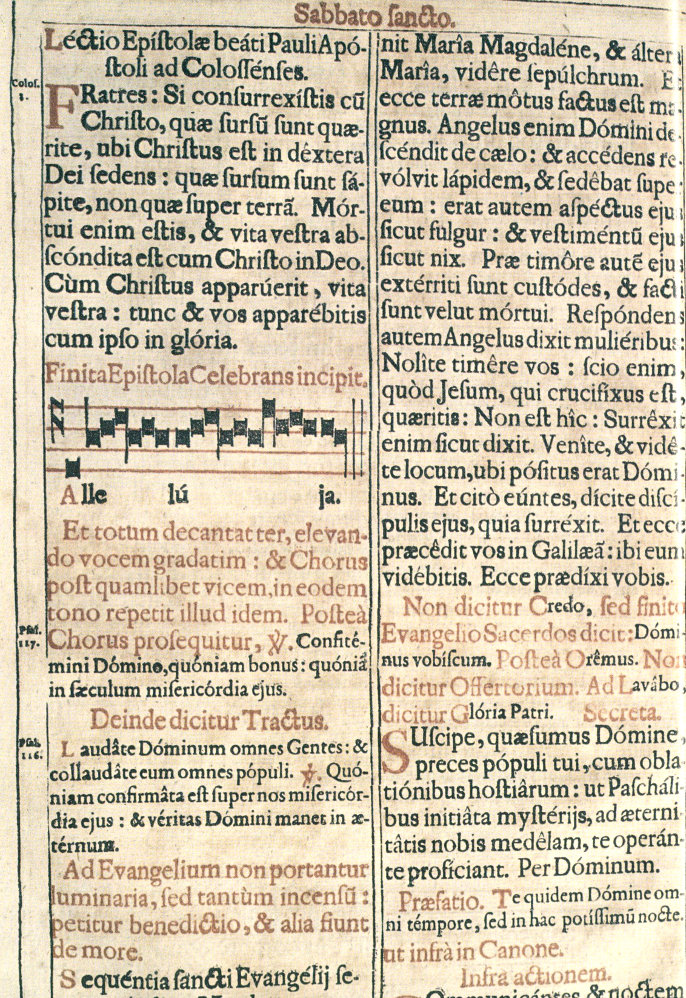 Sabbato sancto.
Léctio Epistolæ beáti Pauli Apó-
stoli ad Colossénses.
Colos.
3.
FRatres: Si consurrexístis cū
Christo, quæ sursū sunt quæ-
rite, ubi Christus est in dêxtera
Dei sedens: quæ sursum sunt sá-
pite, non quæ super terrā. Mór-
tui enim estis, & vita vestra ab-
scóndita est cum Christo in Deo.
Cùm Christus apparúerit, vita
vestra: tunc & vos apparébitis
cum ipso in glória.
Finita Epistola Celebrans incipit.
Alle lú ja.
Et totum decantat ter, elevan-
do vocem gradatim: & Chorus
post quamlibet vicem, in eodem
tono repetit illud idem. Posteà
Psal.
117.
Chorus prosequitur, ℣. Confité-
mini Dómino, quóniam bonus: quóniā
in sæculum misericórdia ejus.
Deinde dicitur Tractus.
Psal.
116.
Laudâte Dóminum omnes Gentes: &
collaudâte eum omnes pópuli. ℣. Quó-
niam confirmâta est super nos misericór-
dia ejus: & véritas Dómini manet in æ-
térnum.
Ad Evangelium non portantur
luminaria, sed tantùm incensū:
petitur benedictio, & alia fiunt
de more.
Sequéntia sancti Evangelij se-
nit Marîa Magdaléne, & álter
Marîa, vidêre sepúlchrum. E
ecce terræ môtus factus est ma-
gnus. Angelus enim Dómini de-
scéndit de cælo: & accédens re-
vólvit lápidem, & sedêbat supe
eum: erat autem aspéctus eju
sicut fulgur: & vestiméntū eju
sicut nix. Præ timôre autē eju
extérriti sunt custódes, & facti
sunt velut mórtui. Respóndens
autem Angelus dixit muliéribus:
Nolîte timêre vos: scio enim,
quòd Jesum, qui crucifíxus est,
quæritis: Non est hîc: Surrêxit
enim sicut dixit. Venîte, & vidê-
te locum, ubi pósitus erat Dómi-
nus. Et citò eúntes, dícite discí-
pulis ejus, quia surréxit. Et ecce
præcêdit vos in Galilæā: ibi eum
vidébitis. Ecce prædíxi vobis.
Non dicitur Credo, sed finito
Evangelio Sacerdos dicit: Dómi-
nus vobíscum. Posteà Orêmus. Non
dicitur Offertorium. Ad Lavábo,
dicitur Glória Patri. Secreta.
SUscipe, quæsumus Dómine,
preces pópuli tui, cum obla-
tiónibus hostiârum: ut Pascháli-
bus initiâta mystérijs, ad æterni-
tâtis nobis medêlam, te operán-
te profíciant. Per Dóminum.
Præfatio. Te quidem Dómine om-
ni témpore, sed in hac potíssimū nocte.
ut infrà in Canone.
Infra actionem.
Communicántes, & noctem